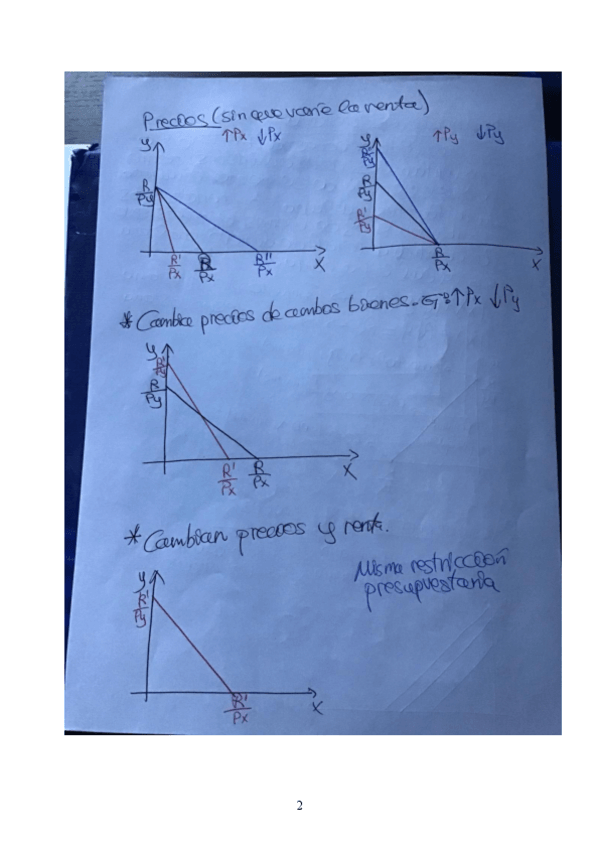 Precios (sin que varíe la renta)
↑Px ↓Px
y
R
Py
R'
Px
R
Px
R''
Px
X
↑Py ↓Py
y
R''
Py
R
Py
R'
Py
R
Px
X
* Cambia precios de ambos bienes. Ej: ↑Px ↓Py
y
R'
Py
R
Py
R'
Px
R
Px
X
* Cambian precios y renta.
Misma restricción
presupuestaria
y
R'
Py
R'
Px
X
2